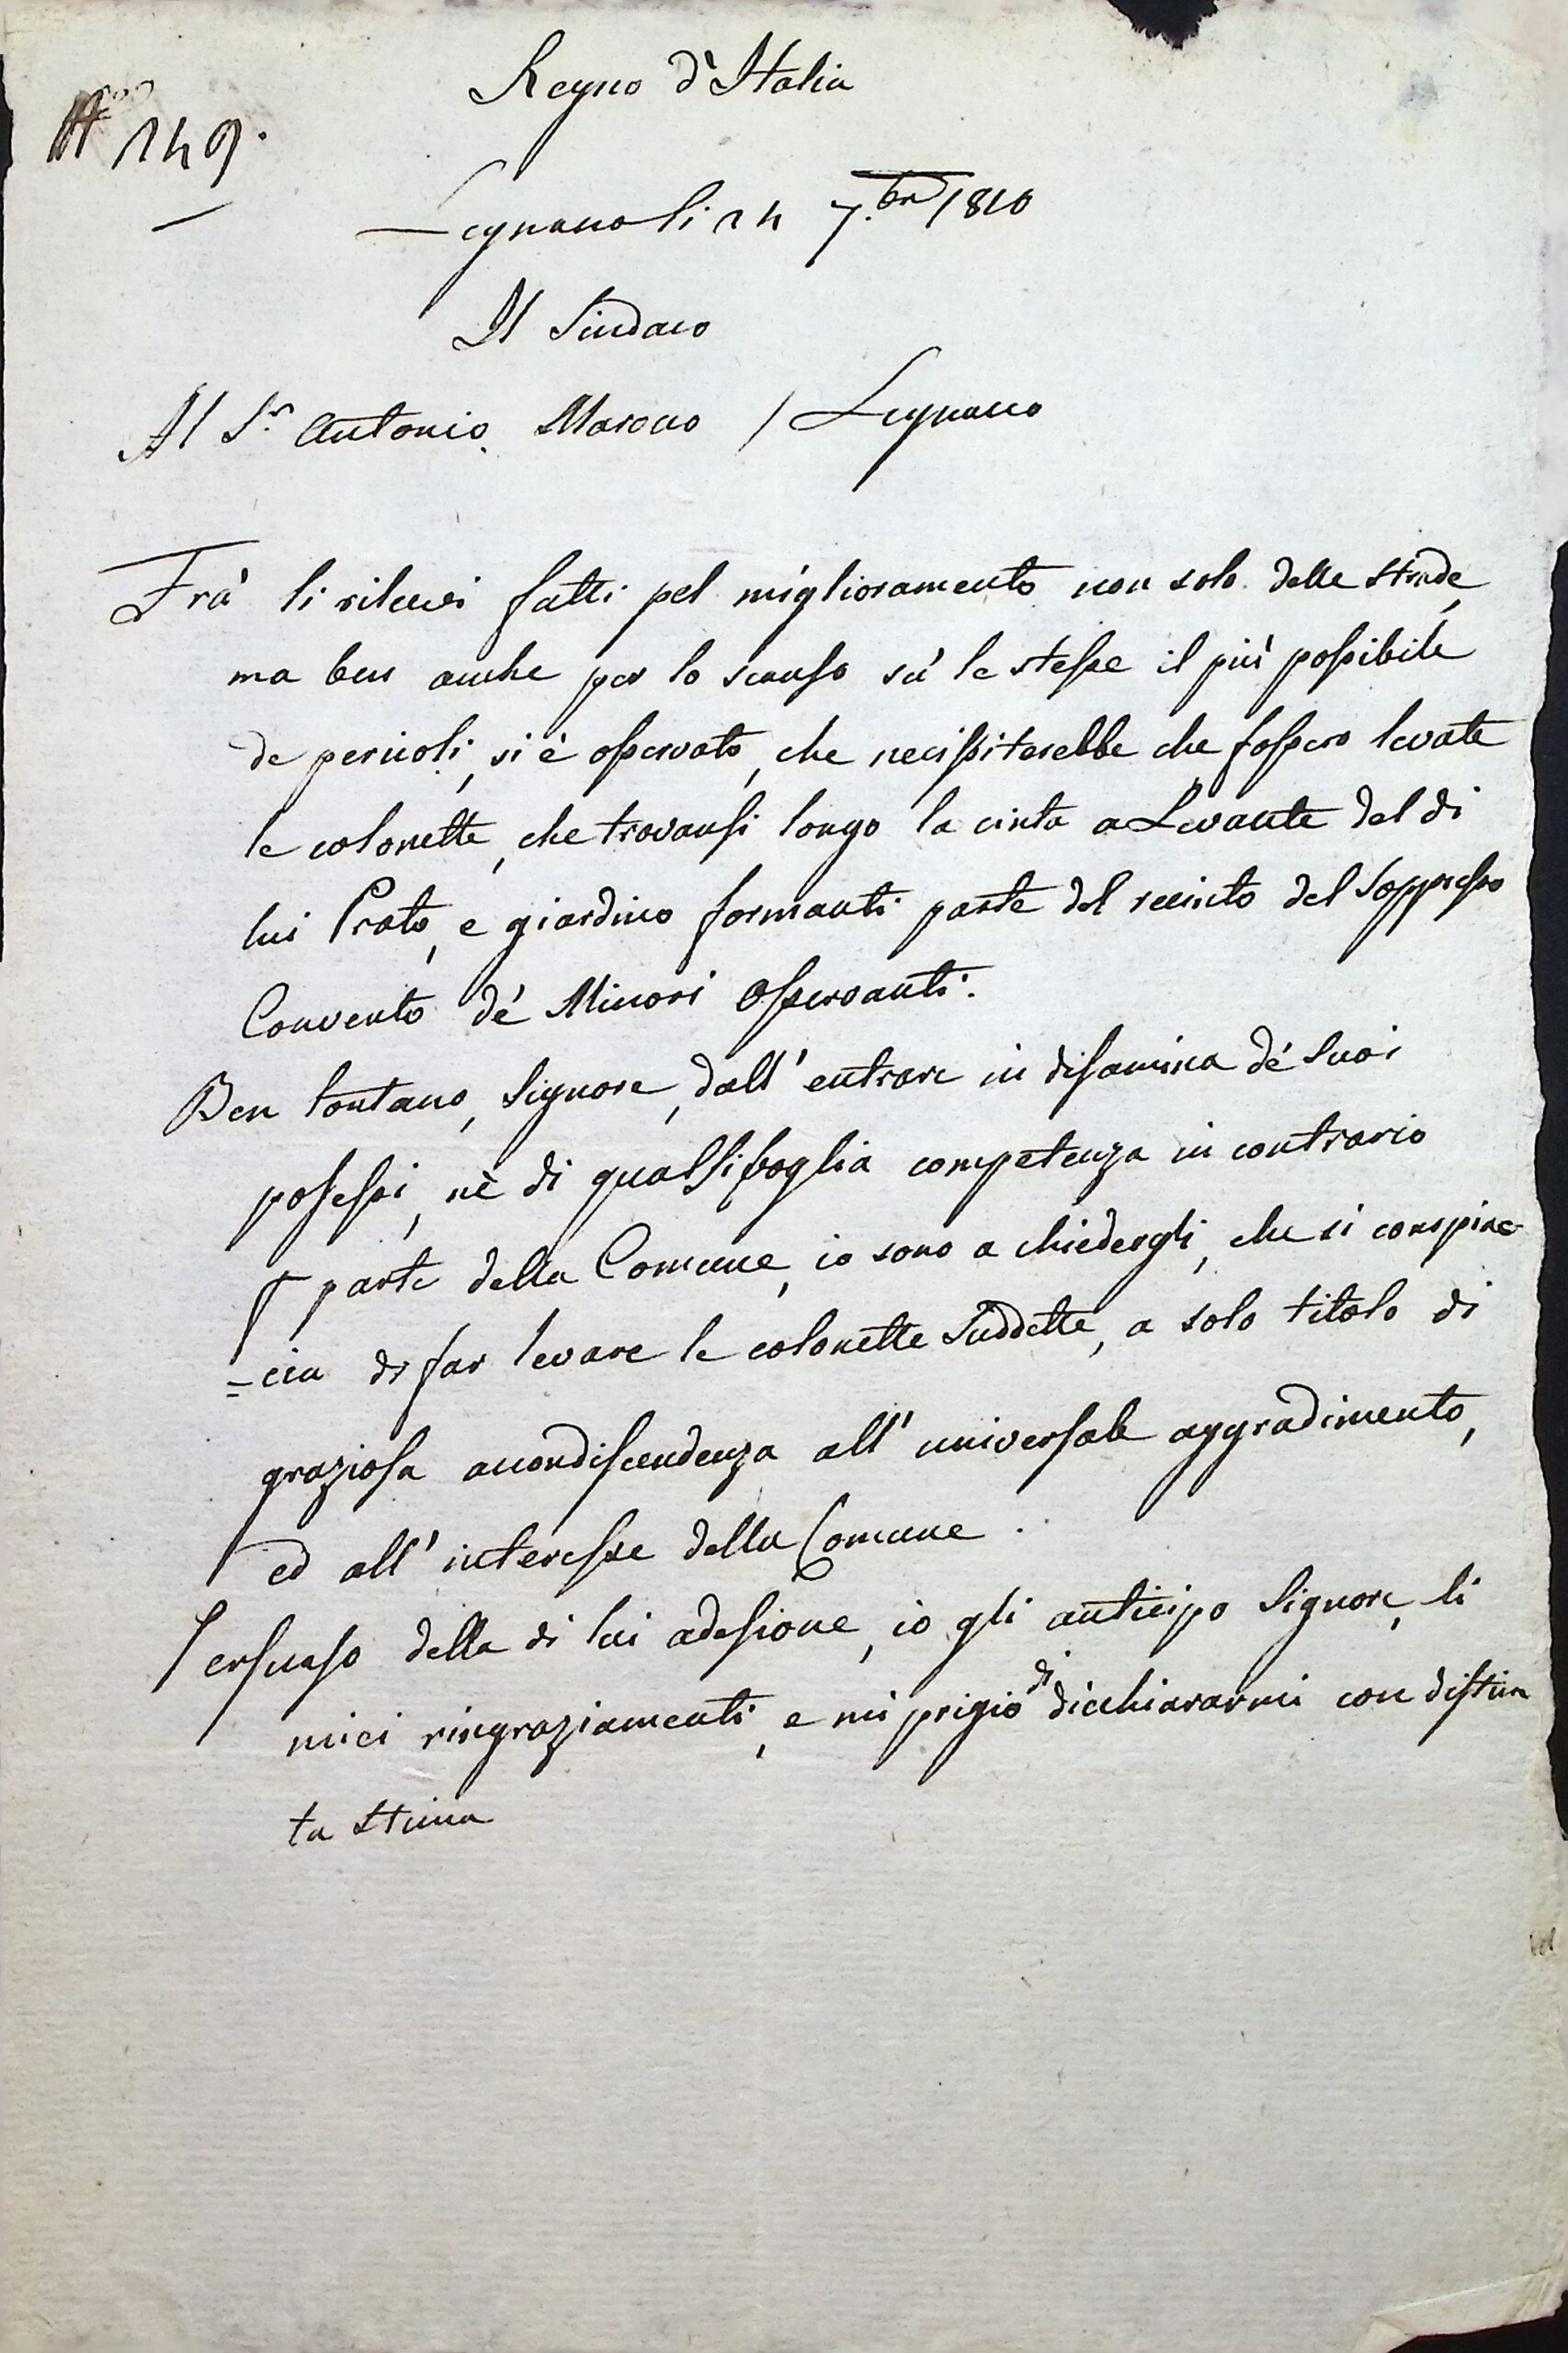 Regno d'Italia
N.° 149.
Legnano li 24 7.bre 1810
Il Sindaco
Al S.r Antonio Marono / Legnano
Frà li rilievi fatti pel miglioramento non solo delle strade,
ma ben anche per lo scanso sù le stesse il più possibile
de pericoli, si è osservato, che necissiterebbe che fossero levate
le colonette, che trovansi longo la cinta a Levante del di
lui Prato, e giardino formanti parte del recinto del Soppresso
Convento de' Minori Osservanti.
Ben lontano, Signore, dall' entrare in disamina de' Suoi
possessi, nè di qualsisvoglia competenza in contrario
parte della Comune, io sono a chiedergli, che si compiac
=cia di far levare le colonette Suddette, a solo titolo di
graziosa acondiscendenza all' universale aggradimento,
ed all' interesse della Comune.
Persuaso della di lui adesione, io gli anticipo Signore, li
miei ringraziamenti, e mi prigio di dicchiararmi con distin
ta stima